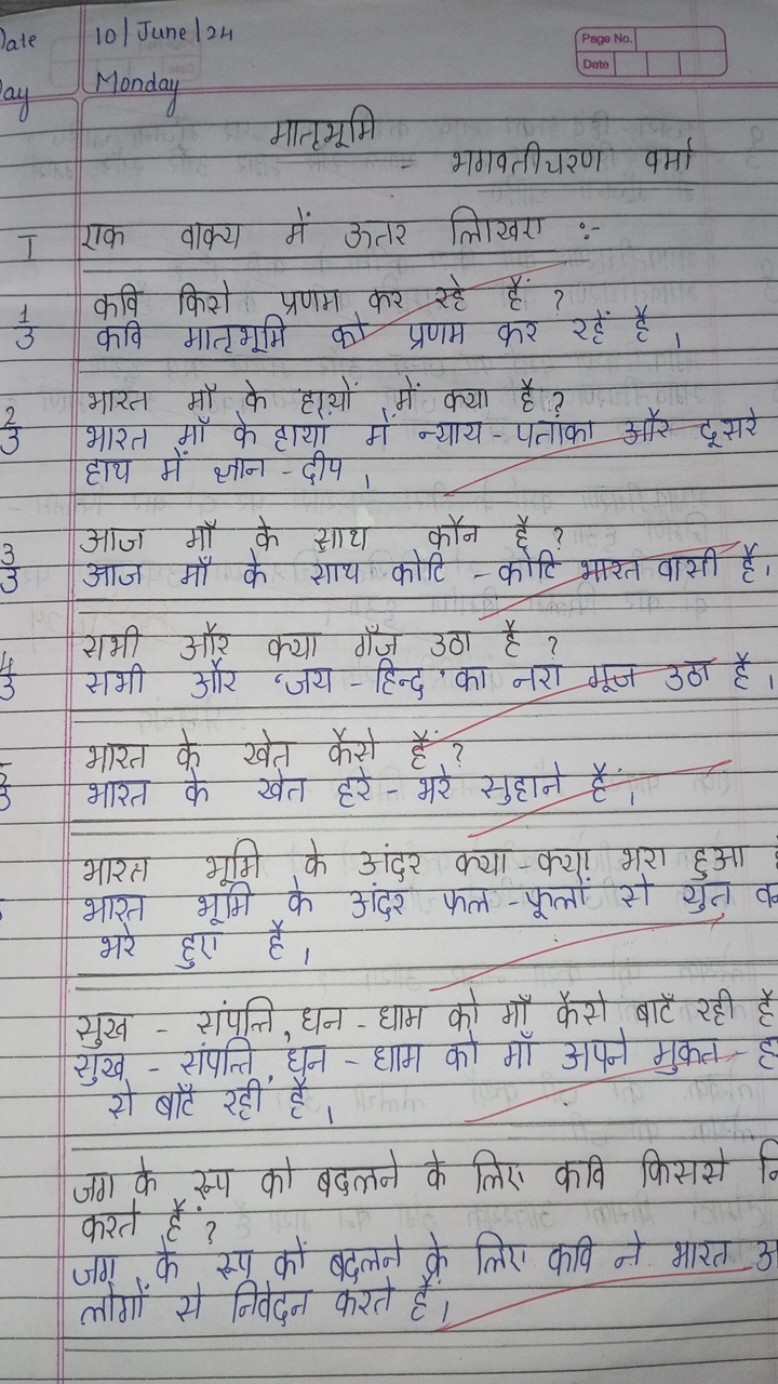 Date 10/June/24
Page No.
Date
Day Monday
मातृभूमि
- भगवतीचरण वर्मा
I एक वाक्य में ऊतर लिखिए :-
1 कवि किसे प्रणम कर रहे हैं ?
उ कवि मातृभूमि को प्रणम कर रहें है ।
2 भारत माँ के हाथों में क्या है ?
उ भारत माँ के हाथों में न्याय - पताका और दूसरे
हाथ में ज्ञान - दीप ।
3 आज माँ के साथ कौन है ?
उ आज माँ के साथ कोटि - कोटि भारत वासी है ।
4 सभी और क्या गूँज उठा है ?
उ सभी और 'जय - हिन्द' का नरा गूज उठा है ।
5 भारत के खेत कैसे हैं ?
उ भारत के खेत हरे - भरे सुहाने हैं ।
भारत भूमि के अंदर क्या - क्या भरा हुआ
भारत भूमि के अंदर फल - फूलों से युत
भरे हुए है ।
सुख - संपत्ति, धन - धाम को माँ कैसे बाटँ रही है
सुख - संपत्ति, धन - धाम को माँ अपने मुकत -
से बाटँ रही है ।
जग के रूप को बदलने के लिए कवि किससे
करते हैं ?
जग के रूप कों बदलने के लिए कवि ने भारत
लोगों से निवेदन करते हैं ।